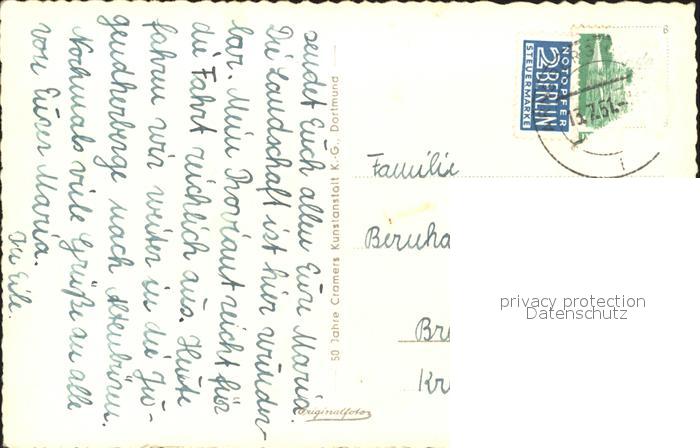 sendet Euch allen Eure Maria.
Die Landschaft ist hier wunder-
bar. Mein Proviant reicht für
die Fahrt reichlich aus. Heute
fahren wir weiter in die Ju-
gendherberge nach Altenbüren.
Nochmals viele Grüße an alle
von Eurer Maria.
In Eile.
50 Jahre Cramers Kunstanstalt K.-G., Dortmund
Originalfoto
NOTOPFER
2 BERLIN
STEUERMARKE
6
Familie
Bernha
Br
Kr
privacy protection
Datenschutz